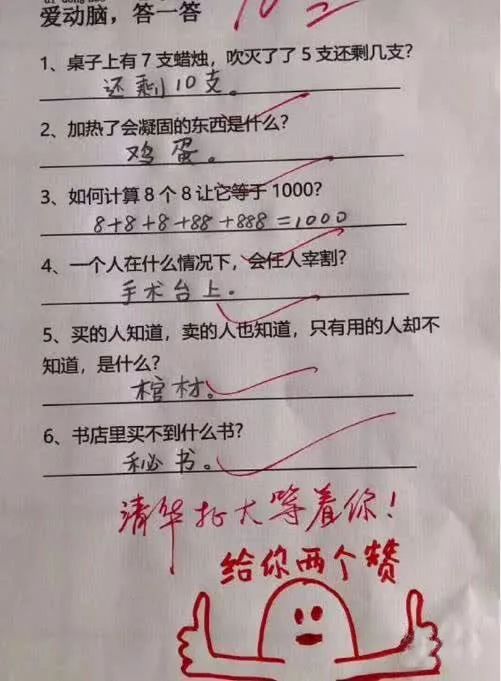 爱动脑，答一答
1、桌子上有7支蜡烛，吹灭了了5支还剩几支？
还剩10支。
2、加热了会凝固的东西是什么？
鸡蛋。
3、如何计算8个8让它等于1000？
8+8+8+88+888=1000
4、一个人在什么情况下，会任人宰割？
手术台上.
5、买的人知道，卖的人也知道，只有用的人却不
知道，是什么？
棺材。
6、书店里买不到什么书？
秘书。
清华北大等着你！
给你两个赞